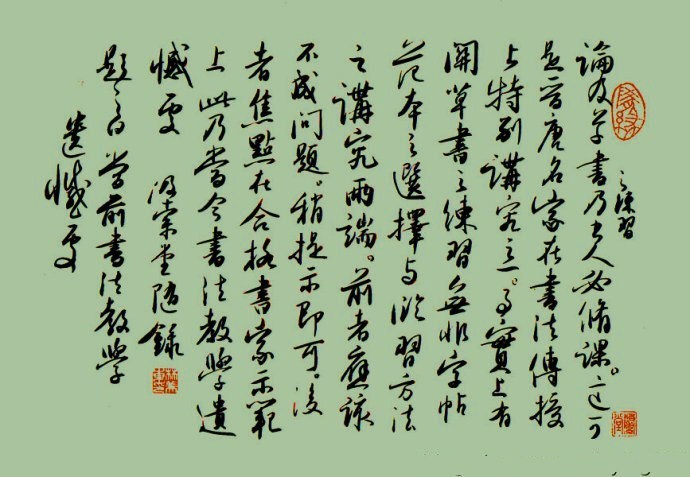 論及草書乃文人必脩課。這可
之練習
是晋唐名家在書法傳授
上特別講究之一。事實上有
關草書之練習無非字帖
范本之選擇与临習方法
之講究兩端。前者應該
不成問題。稍提示即可。後
者焦點在合格書家示範
上此乃當今書法教學遺
憾處 堂隨錄
題之曰 當前書法教學
遺憾處